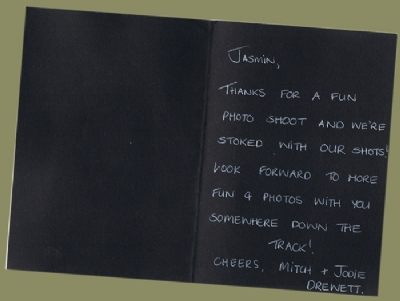 Jasmin,
THANKS FOR A FUN
PHOTO SHOOT AND WE'RE
STOKED WITH OUR SHOTS!
LOOK FORWARD TO MORE
FUN & PHOTOS WITH YOU
SOMEWHERE DOWN THE
TRACK!
CHEERS, MITCH + JODIE
DREWETT.